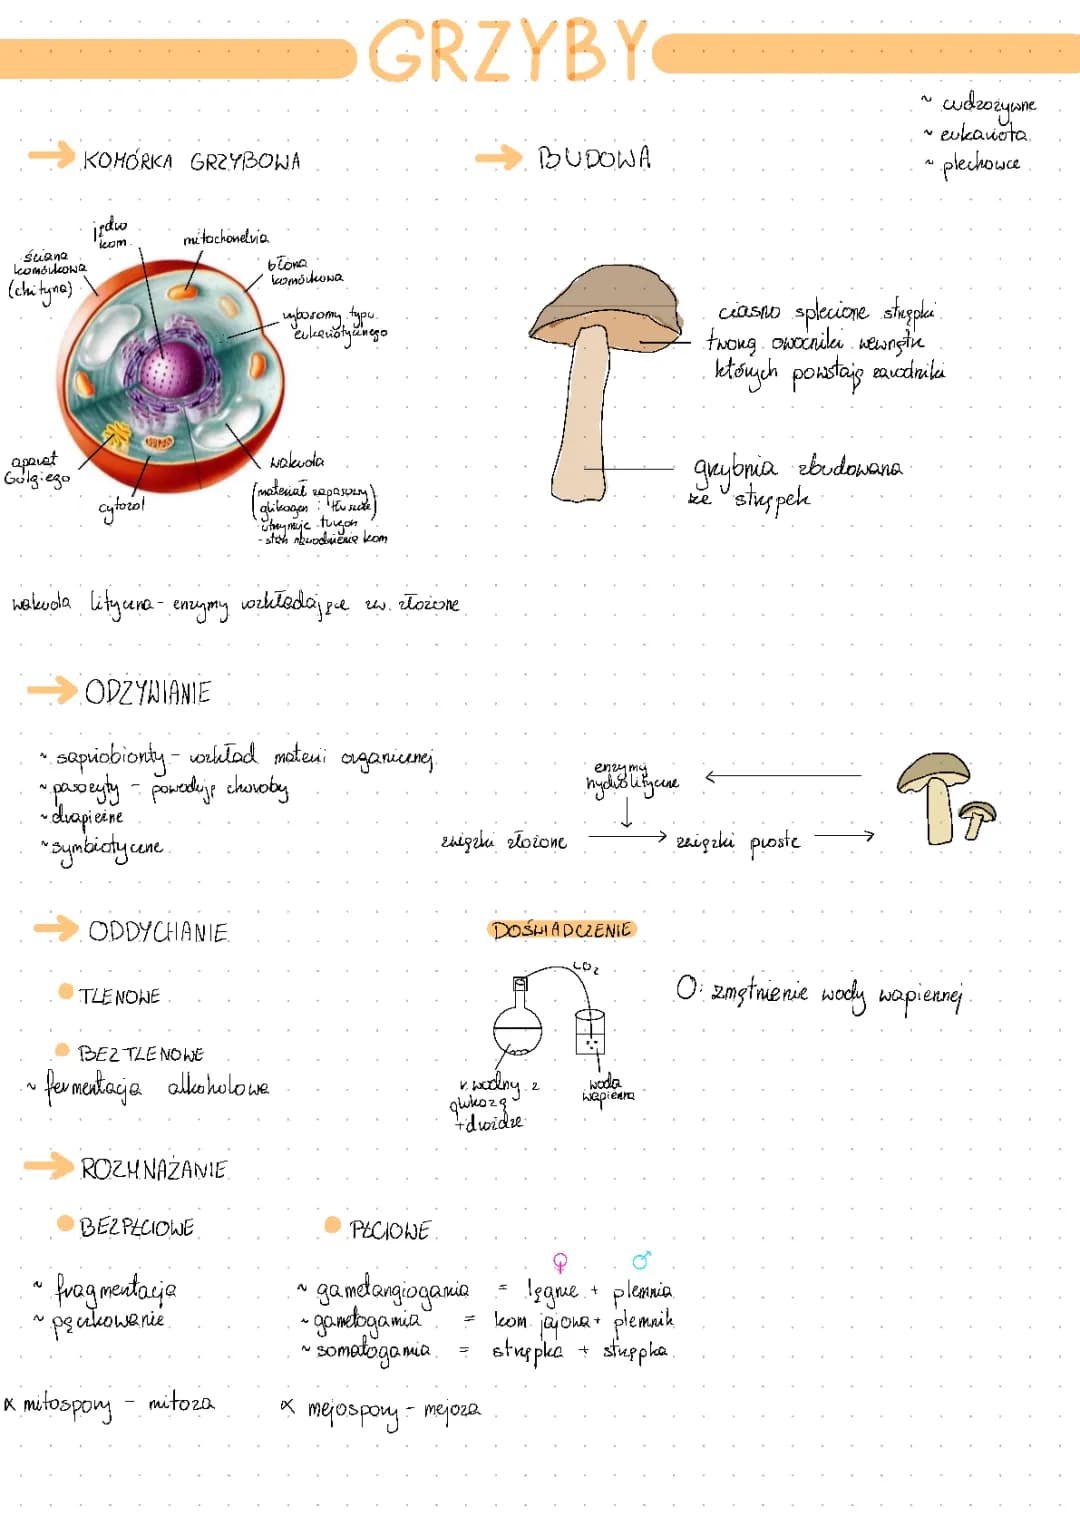 GRZYBY
~ cudzożywne
~ eukariota
~ plechowce
→ KOMÓRKA GRZYBOWA
→ BUDOWA
jądro
kom.
mitochondria
ściana
komórkowa
(chityna)
błona
komórkowa
rybosomy typu
eukariotycznego
aparat
Golgiego
cytozol
wakuola
(materiał zapasowy
glikogen i tłuszcze)
- utrzymuje turgor
- stan nawodnienia kom
ciasno splecione strzępki
tworzą owocniki wewnątrz
których powstają zarodniki
grzybnia zbudowana
ze strzępek
wakuola lityczna - enzymy rozkładające zw. złożone
→ ODŻYWIANIE
~ saprobionty - rozkład materii organicznej
~ pasożyty - powodują choroby
~ drapieżne
~ symbiotyczne
enzymy
hydrolityczne
związki złożone → związki proste →
→ ODDYCHANIE
TLENOWE
BEZTLENOWE
~ fermentacja alkoholowa
DOŚWIADCZENIE
CO2
O: zmętnienie wody wapiennej
r. wodny z
glukozą
+ drożdże
woda
wapienna
→ ROZMNAŻANIE
BEZPŁCIOWE
~ fragmentacja
~ pączkowanie
PŁCIOWE
♀ ♂
~ gametangiogamia = lęgnie + plemnia
~ gametogamia = kom. jajowa + plemnik
~ somatogamia = strzępka + strzępka
∝ mitospory - mitoza
∝ mejospory - mejoza